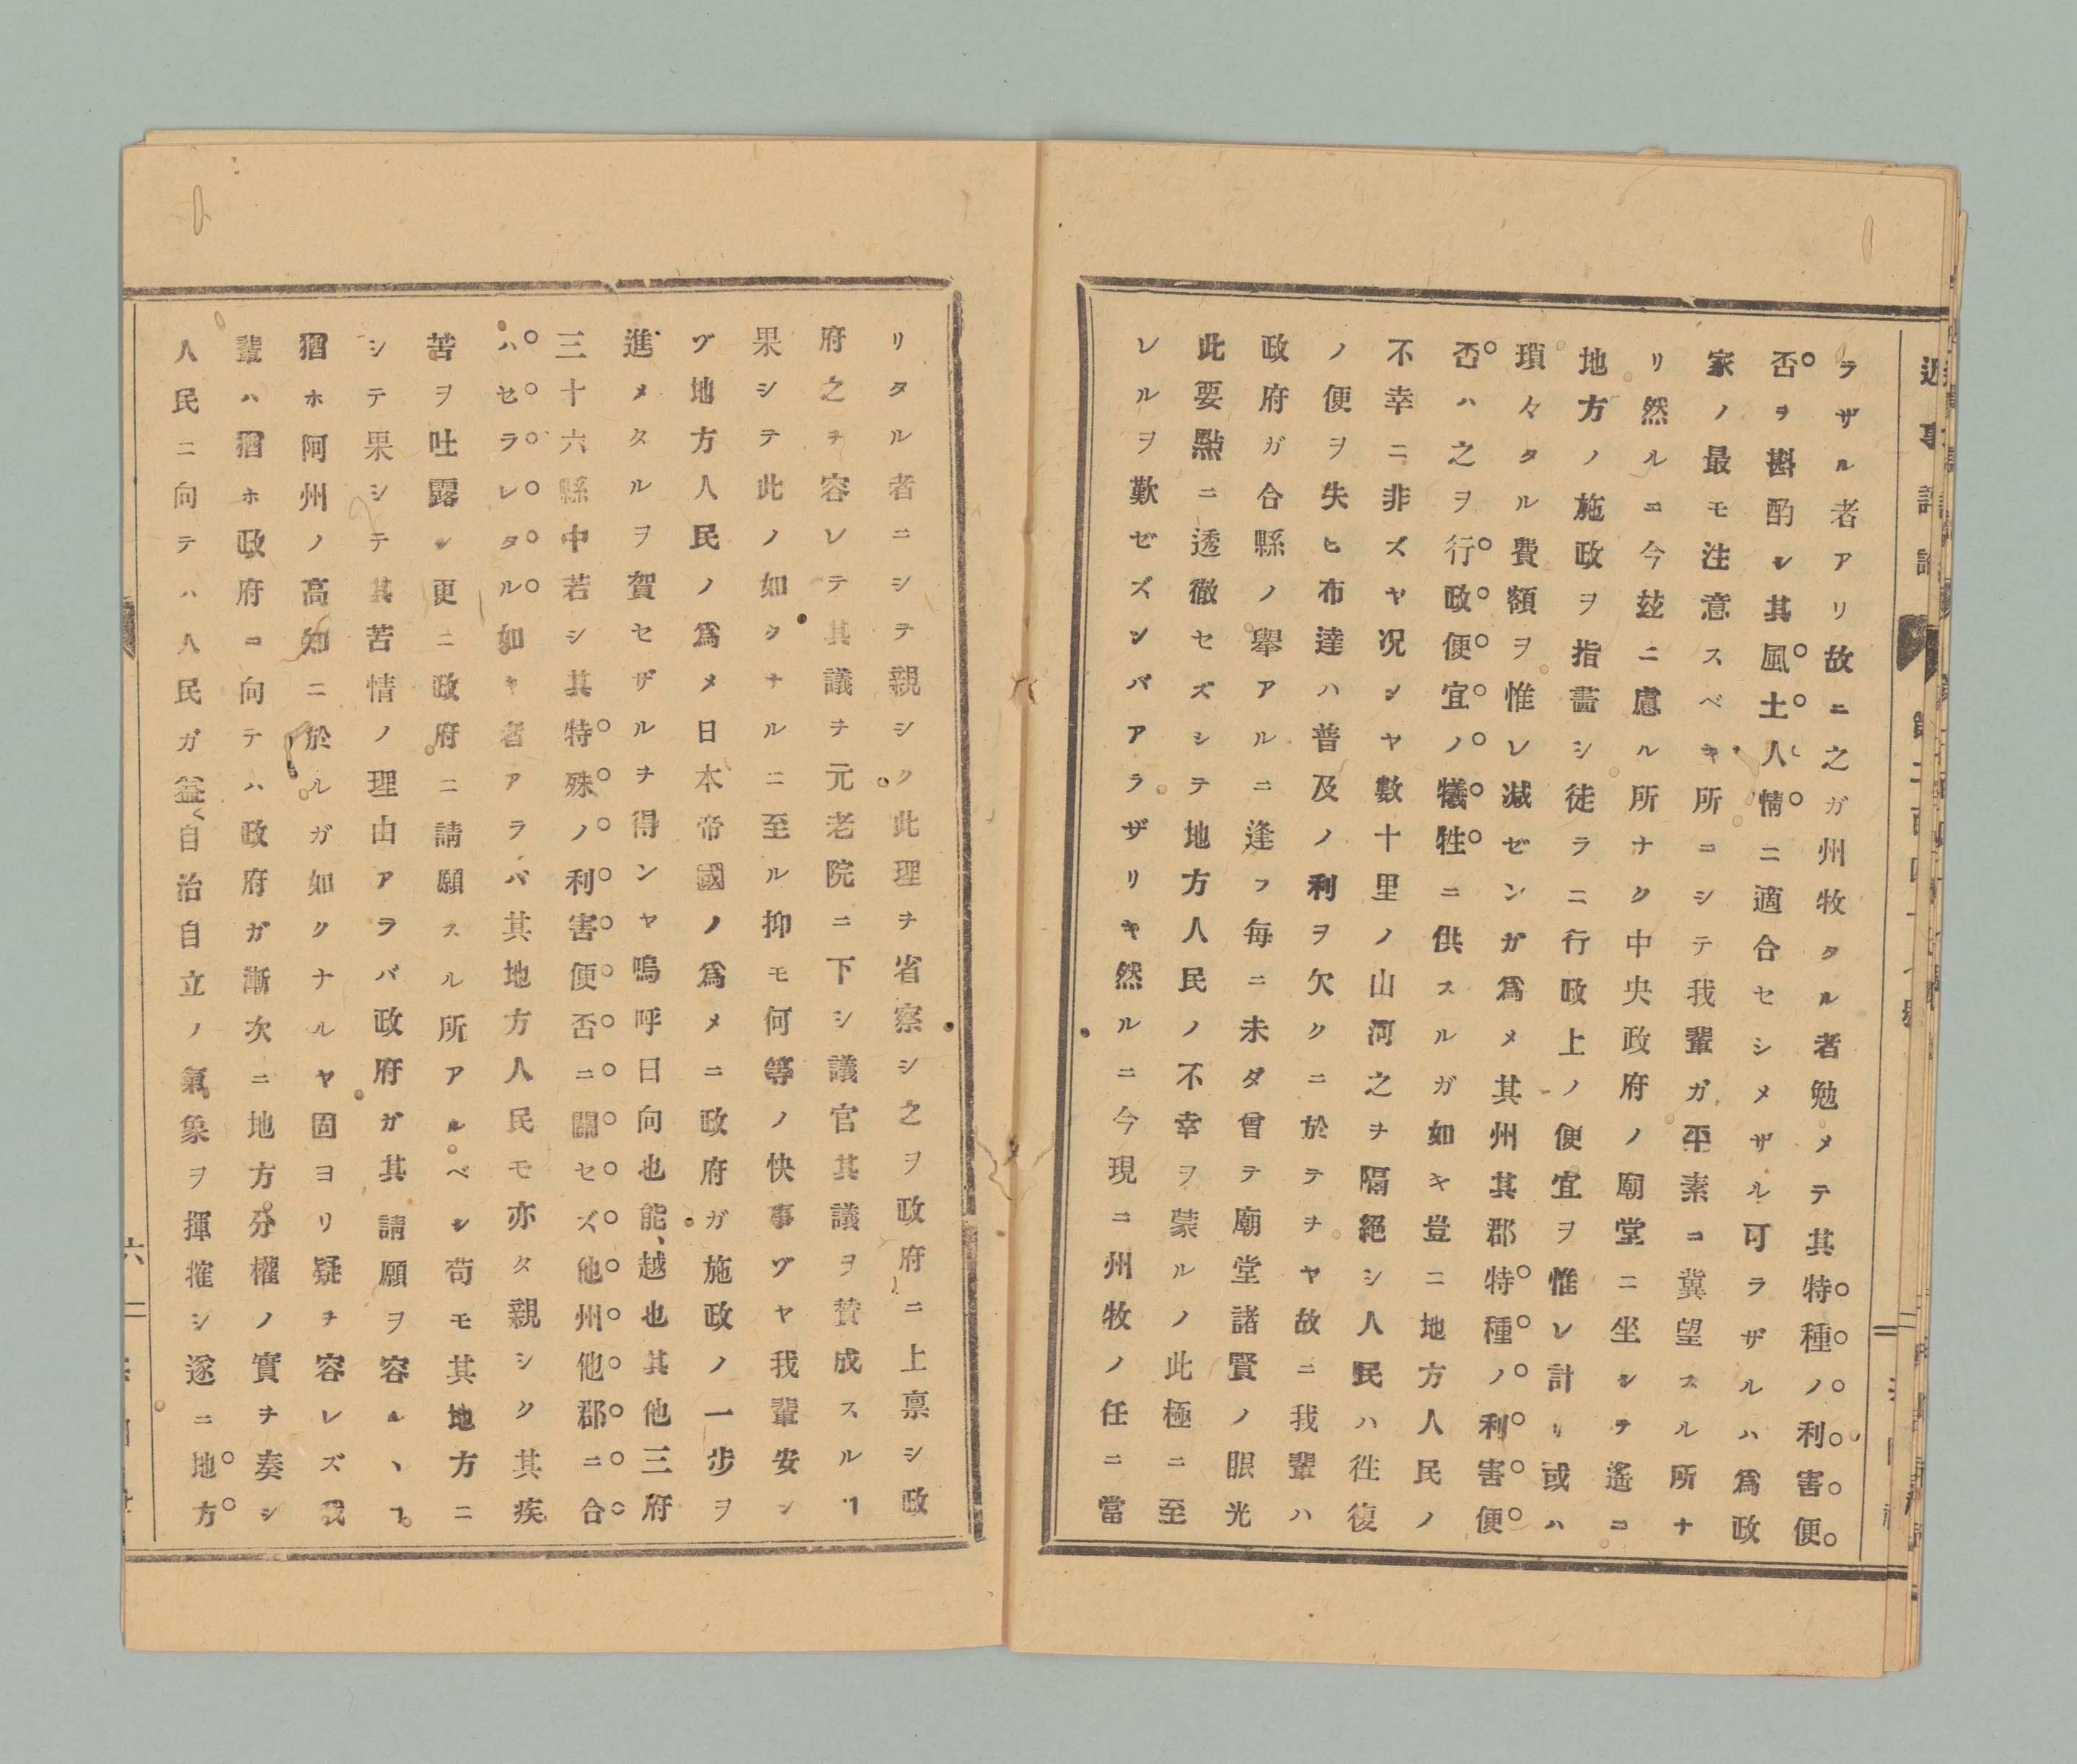 近事評論
ラザル者アリ故ニ之ガ州牧タル者勉メテ其特種ノ利害便
否ヲ斟酌シ其風土人情ニ適合セシメザル可ラザルハ爲政
家ノ最モ注意スベキ所ニシテ我輩ガ平素ニ冀望スル所ナ
リ然ルニ今玆ニ慮ル所ナク中央政府ノ廟堂ニ坐シテ遙ニ
地方ノ施政ヲ指畵シ徒ラニ行政上ノ便宜ヲ惟レ計リ或ハ
瑣々タル費額ヲ惟レ減ゼンガ爲メ其州其郡特種ノ利害便
否ハ之ヲ行政便宜ノ犧牲ニ供スルガ如キ豈ニ地方人民ノ
不幸ニ非ズヤ况ンヤ數十里ノ山河之ヲ隔絕シ人民ハ徃復
ノ便ヲ失ヒ布達ハ普及ノ利ヲ欠クニ於テヲヤ故ニ我輩ハ
政府ガ合縣ノ擧アルニ逢フ毎ニ未ダ曾テ廟堂諸賢ノ眼光
此要點ニ透徹セズシテ地方人民ノ不幸ヲ蒙ルノ此極ニ至
レルヲ歎ゼズンバアラザリキ然ルニ今現ニ州牧ノ任ニ當
リタル者ニシテ親シク此理ヲ省察シ之ヲ政府ニ上禀シ政
府之ヲ容レテ其議ヲ元老院ニ下シ議官其議ヲ賛成スルヿ
果シテ此ノ如クナルニ至ル抑モ何等ノ快事ゾヤ我輩安ン
ゾ地方人民ノ爲メ日本帝國ノ爲メニ政府ガ施政ノ一步ヲ
進メタルヲ賀セザルヲ得ンヤ嗚呼日向也能、越也其他三府
三十六縣中若シ其特殊ノ利害便否ニ關セズ他州他郡ニ合
ハセラレタル如キ者アラバ其地方人民モ亦タ親シク其疾
苦ヲ吐露シ更ニ政府ニ請願スル所アルベシ苟モ其地方ニ
シテ果シテ其苦情ノ理由アラバ政府ガ其請願ヲ容ルヽヿ
猶ホ阿州ノ高知ニ於ルガ如クナルヤ固ヨリ疑ヲ容レズ我
輩ハ猶ホ政府ニ向テハ政府ガ漸次ニ地方分權ノ實ヲ奏シ
人民ニ向テハ人民ガ益〻自治自立ノ氣象ヲ揮擢シ遂ニ地方
六